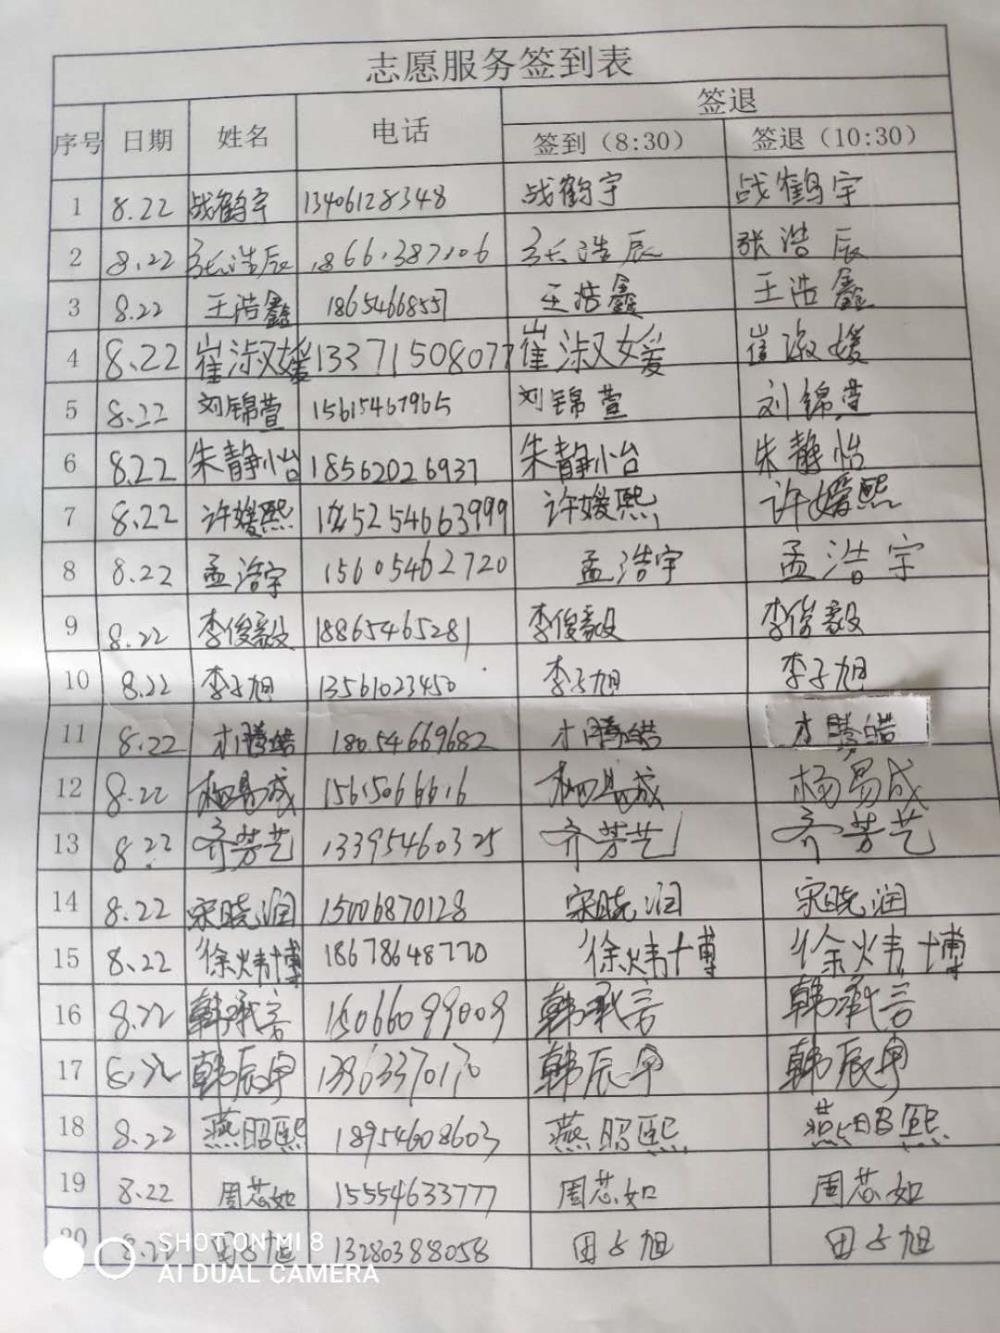 志愿服务签到表
序号 日期 姓名 电话 签退
签到（8:30） 签退（10:30）
1 8.22 战鹤宇 13406128348 战鹤宇 战鹤宇
2 8.22 张浩辰 张浩辰 张浩辰
3 8.22 王浩鑫 18654668557 王浩鑫 王浩鑫
4 8.22 崔淑媛 13371508077 崔淑媛 崔淑媛
5 8.22 刘锦萱 15615467965 刘锦萱 刘锦萱
6 8.22 朱静怡 18562026937 朱静怡 朱静怡
7 8.22 许媛熙 许媛熙 许媛熙
8 8.22 孟浩宇 15605462720 孟浩宇 孟浩宇
9 8.22 李俊毅 18865465281 李俊毅 李俊毅
10 8.22 李子旭 13561023450 李子旭 李子旭
11 8.22 才腾皓 18654669682 才腾皓 才腾皓
12 8.22 杨易成 15615066616 杨易成 杨易成
13 8.22 齐芳艺 13395460325 齐芳艺 齐芳艺
14 8.22 宋晓润 15006870128 宋晓润 宋晓润
15 8.22 徐炜博 18678648770 徐炜博 徐炜博
16 8.22 韩承言 15066099009 韩承言 韩承言
17 8.22 韩辰 韩辰 韩辰
18 8.22 燕昭熙 18954608603 燕昭熙 燕昭熙
19 8.22 周芯如 15554633777 周芯如 周芯如
20 8.22 田占旭 13280388058 田占旭 田占旭
SHOT ON MI 8
AI DUAL CAMERA